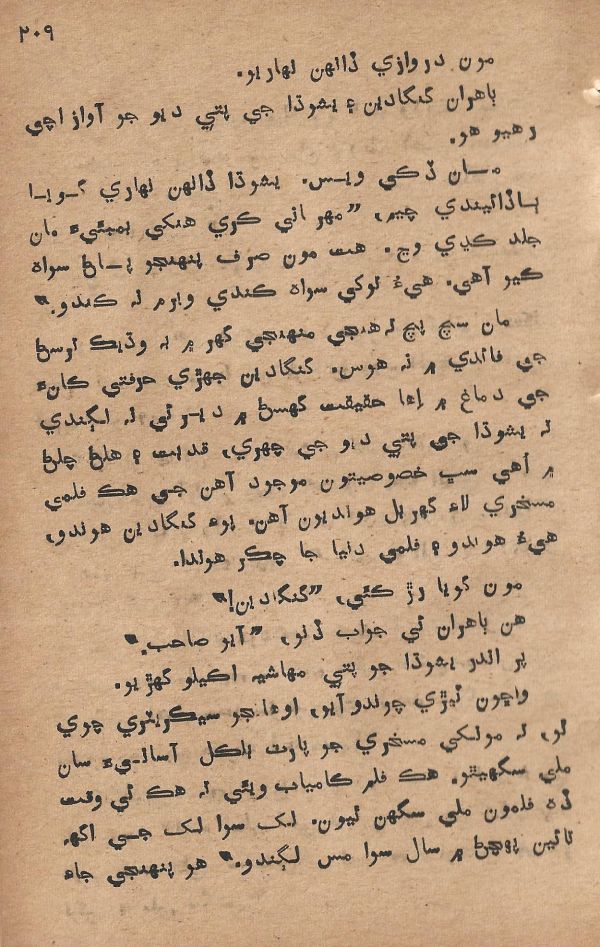 ۲۰۹
مون دروازي ڏانهن نهاريو.
ٻاهران گنگادين ۽ يشوڌا جي پتي ديو جو آواز اچي
رهيو هو.
مان ڏڪي ويس. يشوڌا ڏانهن نهاري گويا
ٻاڏائيندي چيم، ”مهرباني ڪري هنکي بمبئيءَ مان
جلد ڪڍي وڃ. هت مون صرف پنهنجو پاڻ سواهه
ڪيو آهي. هيءُ ٽوکي سواهه ڪندي ويرم نه ڪندو.“
مان سچ پچ ته هنجي منهنجي گهر ۾ به وڌيڪ ترسڻ
جي فائدي ۾ نه هوس. گنگادين جهڙي حرفتي کانءِ
جي دماغ ۾ اها حقيقت گهسڻ ۾ دير ئي نه لڳندي
ته يشوڌا جي پتي ديو جي چهري، قدبت ۽ هلڻ چلڻ
۾ اُهي سڀ خصوصيتون موجود آهن جي هڪ فلمي
مسخري لاءِ گهربل هونديون آهن. پوءِ گنگادين هوندو،
هيءُ هوندو ۽ فلمي دنيا جا چڪر هوندا.
مون گويا رڙ ڪئي، ”گنگادين!“
هن ٻاهران ئي جواب ڏنو، ”آيو صاحب.“
پر اندر يشوڌا جو پتي مهاشيه اڪيلو گهڙيو.
واڇون ٽيڙي چوندو آيو، اوهانجو سيڪريٽري چوي
ٿو، ته مونکي مسخري جو پارٽ بلڪل آسانيءَ سان
ملي سگهيٿو. هڪ فلم ڪامياب ويئي ته هڪ ئي وقت
ڏهه فلمون ملي سگهن ٿيون. لک سوا لک جي اگهه
تائين پهچڻ ۾ سال سوا مس لڳندو.“ هو پنهنجي جاءِ